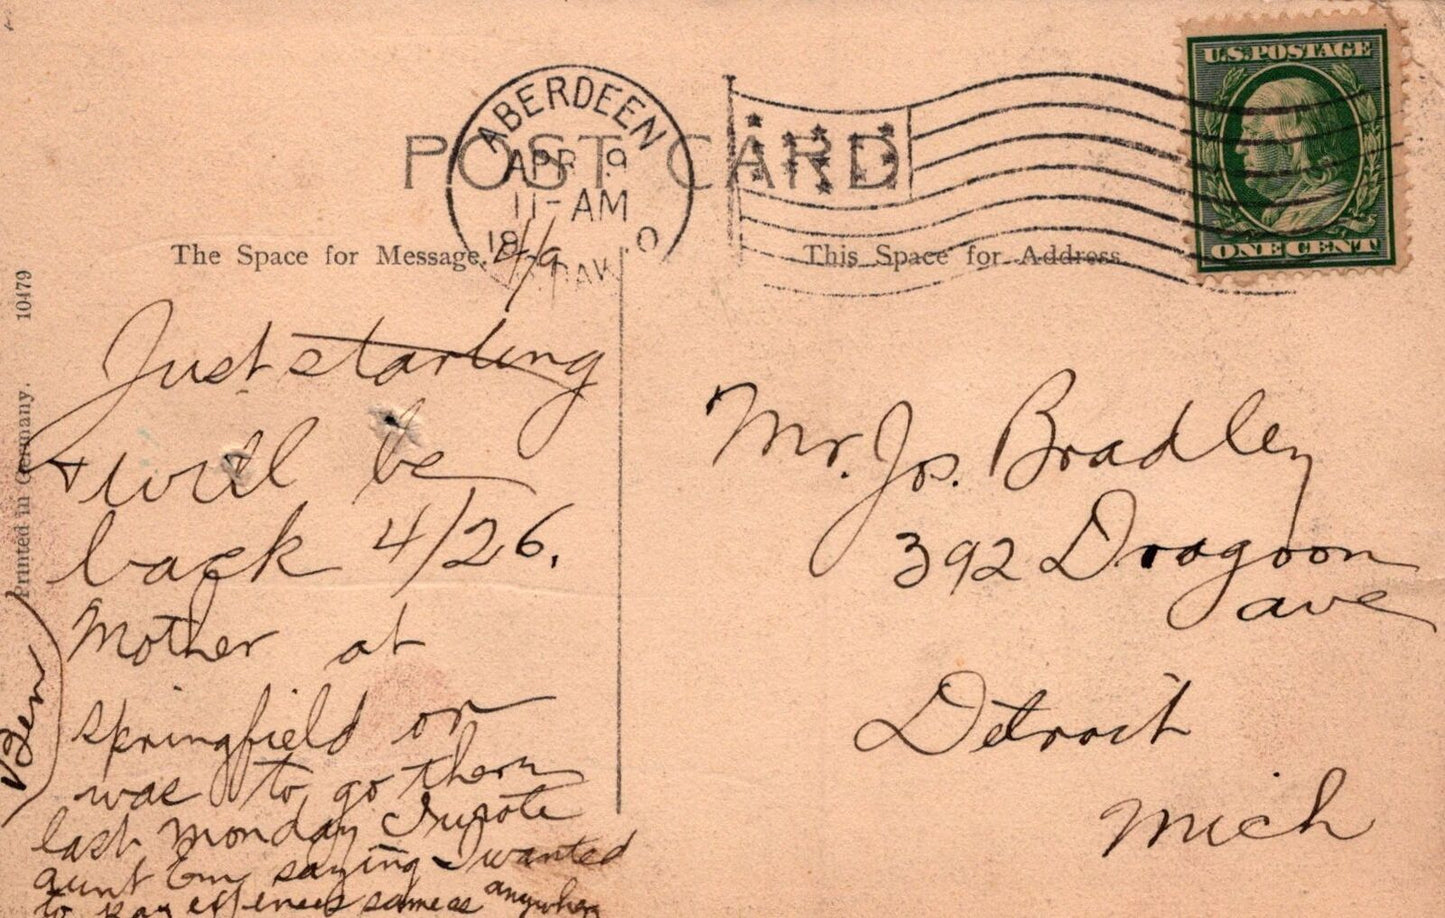 U.S. POSTAGE
ONE CENT
ABERDEEN
APR 9
11-AM
19 0
POST CARD
The Space for Message.
This Space for Address
Printed in Germany. 10479
4/9
Just starting
+ will be
back 4/26.
Mother at
Springfield or
was to go there
last Monday I wrote
aunt Em saying I wanted
to pay expenses same as anywhere
Ben
Mr. Jos. Bradley
392 Dragoon
ave
Detroit
Mich